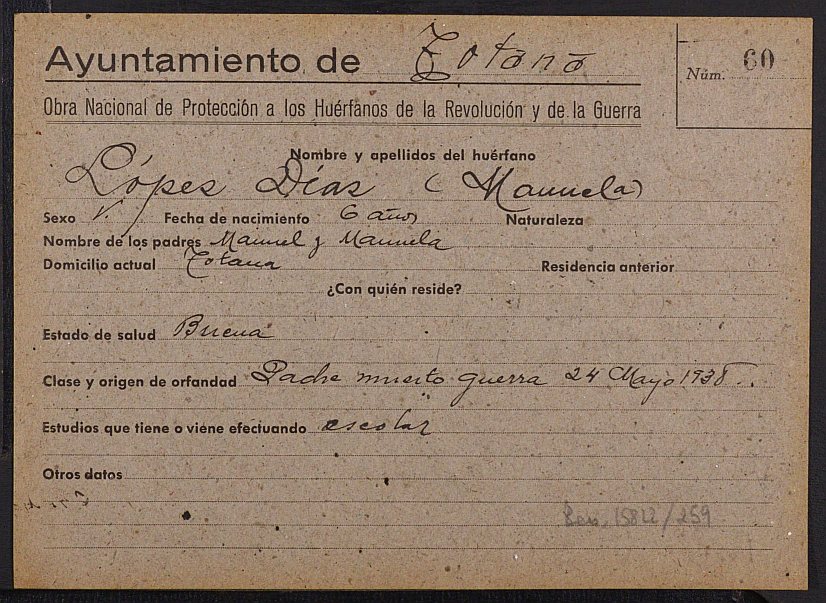 Ayuntamiento de Totana
Núm. 60
Obra Nacional de Protección a los Huérfanos de la Revolución y de la Guerra
Nombre y apellidos del huérfano
Lópes Días (Manuela)
Sexo V. Fecha de nacimiento 6 años Naturaleza
Nombre de los padres Manuel y Manuela
Domicilio actual Totana Residencia anterior
¿Con quién reside?
Estado de salud Buena
Clase y origen de orfandad Padre muerto guerra 24 Mayo 1938.
Estudios que tiene o viene efectuando escolar
Otros datos
15822/259